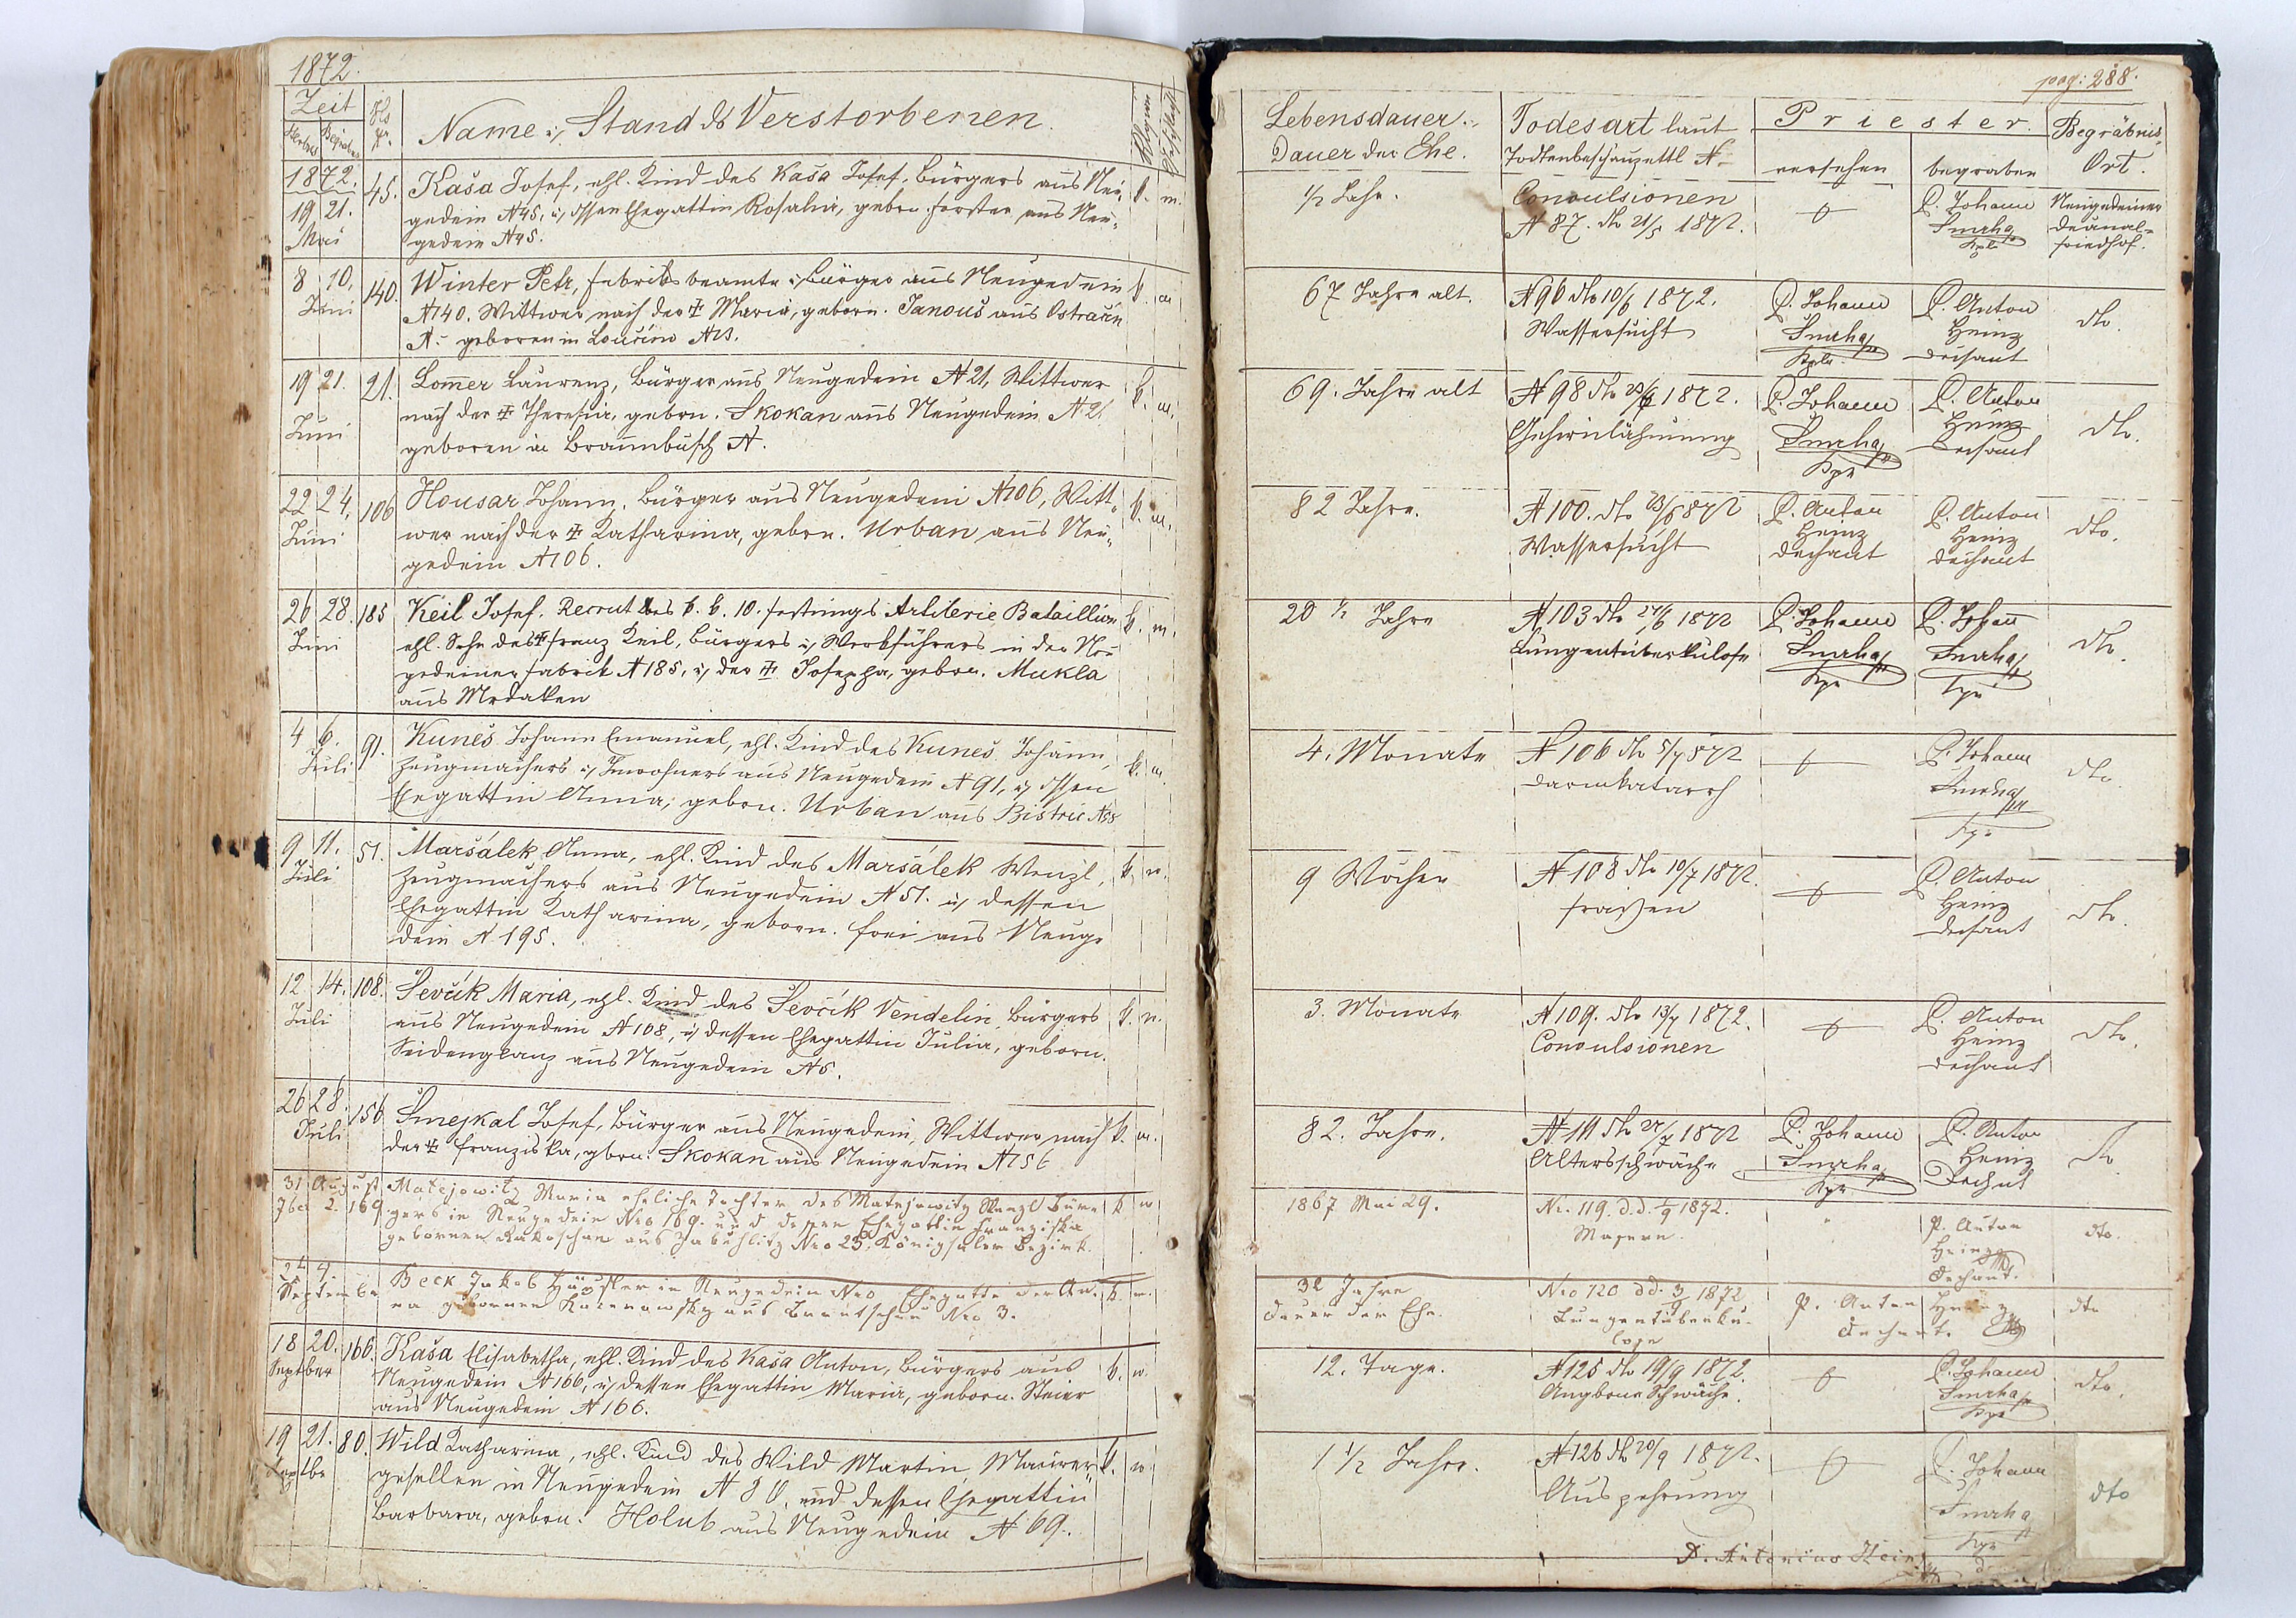 1872.
Zeit
Hs
N.
Name u. Stand des Verstorbenen.
Religion
Geschlecht
1872.
19 21. Mai
45.
Kaša Josef, ehl. Kind des Kaša Josef, Bürgers aus Neu-
gedein N 45, u. dssen Ehegattin Rosalia, gebrn. Forster aus Neu-
gedein N 45.
k. m.
8 10. Juni
140.
Winter Petr, Fabriksbeamte u. Bürger aus Neugedein
N 140. Wittwer nach der ‡ Maria, geborn. Janouš aus Ostračin
N. geboren in Loučim N 23.
k. m
19 21. Juni
21.
Lomer Laurenz, Bürger aus Neugedein N 21, Wittwer
nach der ‡ Theresia, gebrn. Skokan aus Neugedein N 21.
geboren in Braunbusch N.
k. m.
22 24. Juni
106
Housar Johann, Bürger aus Neugedein N 106, Witt-
wer nach der ‡ Katharina, gebrn. Urban aus Neu-
gedein N 106.
k. m.
26 28. Juni
185
Keil Josef. Recrut des k. k. 10. Festungs Artilerie Bataillion
ehl. Sohn des ‡ Franz Keil, Bürgers u. Werkführers in der Neu
gedeiner Fabrik N 185, u. der ‡ Josepha, gebrn. Mukla
aus Mrdaken
k. m.
4 6. Juli
91.
Kuneš Johann Emanuel, ehl. Kind des Kuneš Johann,
Zeugmachers u. Inwohners aus Neugedein N 91, u. dssen
Ehegattin Anna, gebrn. Urban aus Bistric N 55
k. m.
9 11. Juli
51.
Maršálek Anna, ehl. Kind des Maršálek Wenzl,
Zeugmachers aus Neugedein N 51. u. dessen
Ehegattin Katharina, geborn. Frei aus Neuge
dein N 195.
k. w.
12 14. Juli
108.
Ševčík Maria, ehl. Kind des Ševčík Vendelin, Bürgers
aus Neugedein N 108, u. dessen Ehegattin Julia, geborn.
Seidenglanz aus Neugedein N 5.
k. w.
26 28. Juli
156
Smejkal Josef, Bürger aus Neugedein, Wittwer nach
der ‡ Franziska, gbrn. Skokan aus Neugedein N 156
k. m.
31 August
7ber 2.
169.
Matejowitz Maria eheliche Tochter des Matejowitz Wenzl Bür-
gers in Neugedein Nro 169. und dessen Ehegattin Franziska
gebornen Rakoschan aus Zabehlitz Nro 25. Königsaler Bezirk.
k w
2 4
September
Beck Jakob Häusler in Neugedein Nro Ehegatte der An-
na gebornen
aus
Nro 3.
k. m.
18 20. Septber
166.
Kaša Elisabetha, ehl. Kind des Kaša Anton, Bürgers aus
Neugedein N 166, u. dessen Ehegattin Maria, geborn. Steier
aus Neugedein N 166.
k. w.
19 21. Septbr
80.
Wild Katharina, ehl. Kind des Wild Martin, Maurer-
gesellen in Neugedein N 80, und dessen Ehegattin
Barbara, gebrn. Holub aus Neugedein N 69.
k. w
pag: 288.
Lebensdauer.
Dauer der Ehe.
Todesart laut
Todtenbeschauzettl N.
Priester.
versehen
begraben
Begräbnis
Ort.
1/2 Jahr.
Convulsionen
N 87. dto 21/5 1872.
P. Johann
Smrha
Kpl.
Neugedeiner
Decanal-
friedhof.
67 Jahre alt.
N 96 dto 10/6 1872.
Wassersucht
P. Johann
Smrha
Kpl.
P. Anton
Heinz
Dechant
dto.
69. Jahre alt
N 98 dto 20/6 1872.
Gehirnlähmung
P. Johann
Smrha
Kpl
P. Anton
Heinz
Dechant
dto.
82 Jahre.
N 100. dto 23/6 872
Wassersucht
P. Anton
Heinz
Dechant
P. Anton
Heinz
Dechant
dto.
20 1/2 Jahre
N 103 dto 27/6 1872
Lungentuberkulose
P. Johann
Smrha
Kpl
P. Johan
Smrha
Kpl
dto.
4. Monate
N 106 dto 5/7 872
Darmkatarrh
P. Johann
Smrha
Kpl
dto
9 Wochen
N 108 dto 10/7 1872.
Fraißen
P. Anton
Heinz
Dechant
dto.
3. Monate
N 109. dto 13/7 1872.
Convulsionen
P. Anton
Heinz
Dechant
dto.
82. Jahre.
N 111 dto 27/7 1872
Altersschwäche
P. Johann
Smrha
Kpl
P. Anton
Heinz
Dechant
dto
1867 Mai 29.
Nr. 119. d.d. 1/9 1872.
Masern.
P. Anton
Heinz
Dechant.
dto.
32 Jahre
Dauer der Ehe.
Nro 120 dd. 3/9 1872
Lungentuberku-
lose
P. Anton Heinz
Dechant.
dto
12. Tage.
N 125 dto 19/9 1872.
Angborne Schwäche.
P. Johann
Smrha
Kpl
dto.
1 1/2 Jahr.
N 126 dto 20/9 1872.
Auszehrung
P. Johann
Smrha
Kpl
dto
P. Antonius Heinz